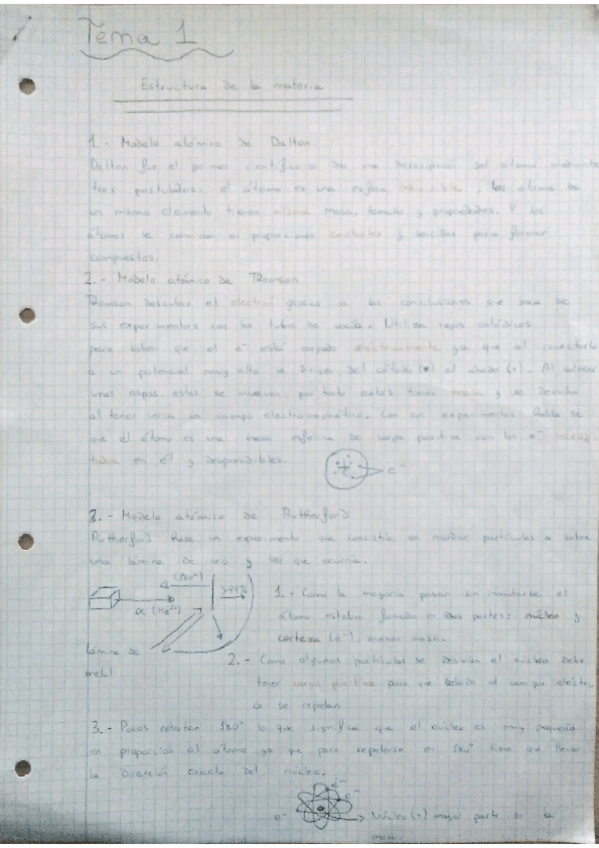 Tema 1
Estructura de la materia
1.- Modelo atómico de Dalton.
Dalton fue el primer científico dar una descripción del átomo mediante
tres postulados: el átomo es una esfera indivisible, los átomos de
un mismo elemento tienen misma masa, tamaño y propiedades. Y los
átomos se combinan en proporciones constantes y sencillas para formar
compuestos.
2.- Modelo atómico de Thomson
Thomson descubre el electrón gracias a las conclusiones que saca de
sus experimentos con los tubos de vacío. Utiliza rayos catódicos
para saber que el e⁻ está cargado eléctricamente ya que al conectarlo
a un potencial muy alto se dirigen del cátodo (-) al ánodo (+). Al colocar
unas aspas, estas se mueven, por tanto estos tienen masa y se desvían
al tener cerca un campo electromagnético. Con sus experimentos
que el átomo es una masa esférica de carga positiva con los e⁻
en él y desprendibles.
e⁻
3.- Modelo atómico de Rutherford
Rutherford hace un experimento que consistía en mandar partículas α sobre
una lámina de oro y ver que ocurría.
(180°)
>99%
α (He²⁺)
lámina de
metal
1.- Como la mayoría pasan sin inmutarse el
átomo estaba formado en dos partes: núcleo y
corteza (e⁻), menor masa.
2.- Como algunas partículas se desvían el núcleo debe
tener carga positiva para que debido al campo
se repelan
3.- Pocas rebotan 180° lo que significa que el núcleo es muy pequeño
en proporción al átomo ya que para repelerse en 180° tiene que llevar
la dirección exacta del núcleo.
e⁻
e⁻
e⁻
Núcleo (+) mayor parte de la
masa.